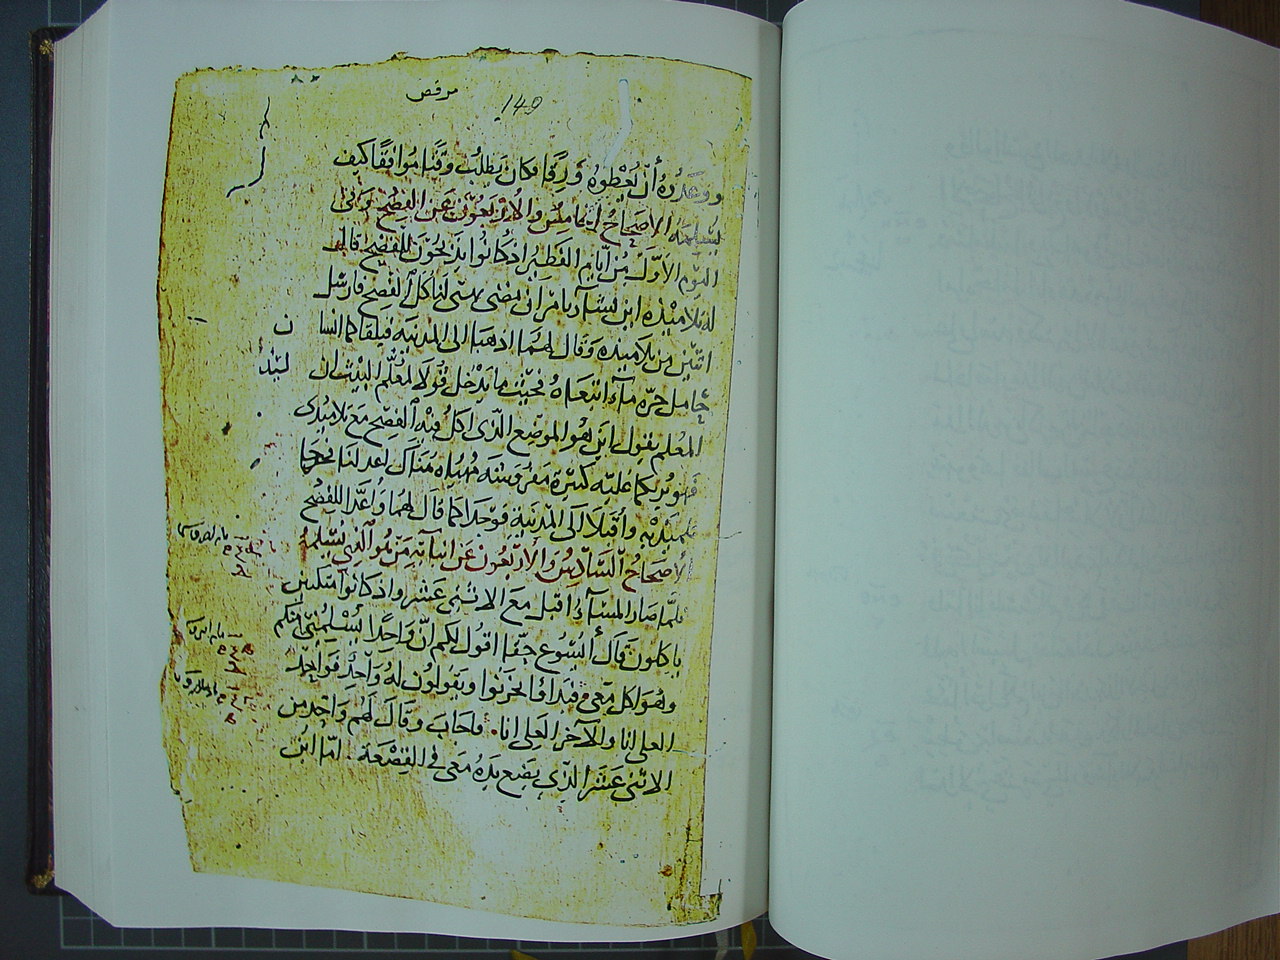 مرقص
149
ووعدوه أن يُعْطوهُ وَرِقًا فكان يَطلُبُ وَقْتًا مُوافقًا كيف
يسلمه الاصحاحُ الخامِسُ والارْبَعُون عَن الفِصْح وَفى
اليَوم الاوّل مُن ايام الفَطِير اذ كانوا يَذبحُون للفِصْح قال
له تلاميْذه اين تشآء يا مر ان نمضى نهيى لنا كل الفِصح فارسل
اثنين من تلاميذه وَقال لهُما اذهبا الى المدينَه فيلقاكما انسا ن
حامل جرّه مآء اتبَعاهُ فحيْث ما يَدْخل قُولا لمُعَلّم البَيْت ان
المُعلم يقول اين هُو الموضِع الّذى اكل فيْه الفِصْح مَع تلاميذى
فهو يُريكما عليّه كَبيْرَة مَفرُوشَه مُهيّاه هُنَاك اعدا لنَا فخرجا
تلميذيْه وأقبَلا الى المدينَةِ فوَجَدا كما قال لهُما وأعَدّا للفِصْح
الأصْحَاحُ السّادِسُ وَالارْبَعُون عَن انباَتهِ مَن هُو الّذِي يُسْلِمهُ
فلمّا صَار المسَآءُ اقبل مَعَ الاثنى عَشر واذ كانوا متكيين
ياكلون قَال ألسُوع حقًا اقول لكم انّ وَاحِدًا يُسْلِمُني منكم
وهُوَ اكل مَعى فبَداؤا يحزنُوا ويَقولون لهُ وَاحِدٌ فَوَاحِد
العلى انا والآخر العلى انا فاجابَ وقَالَ لَهُم وَاحِد من
الاثنى عَشر الّذِي يضع يدَهُ مَعى فى القِصْعَة امّا ابْن